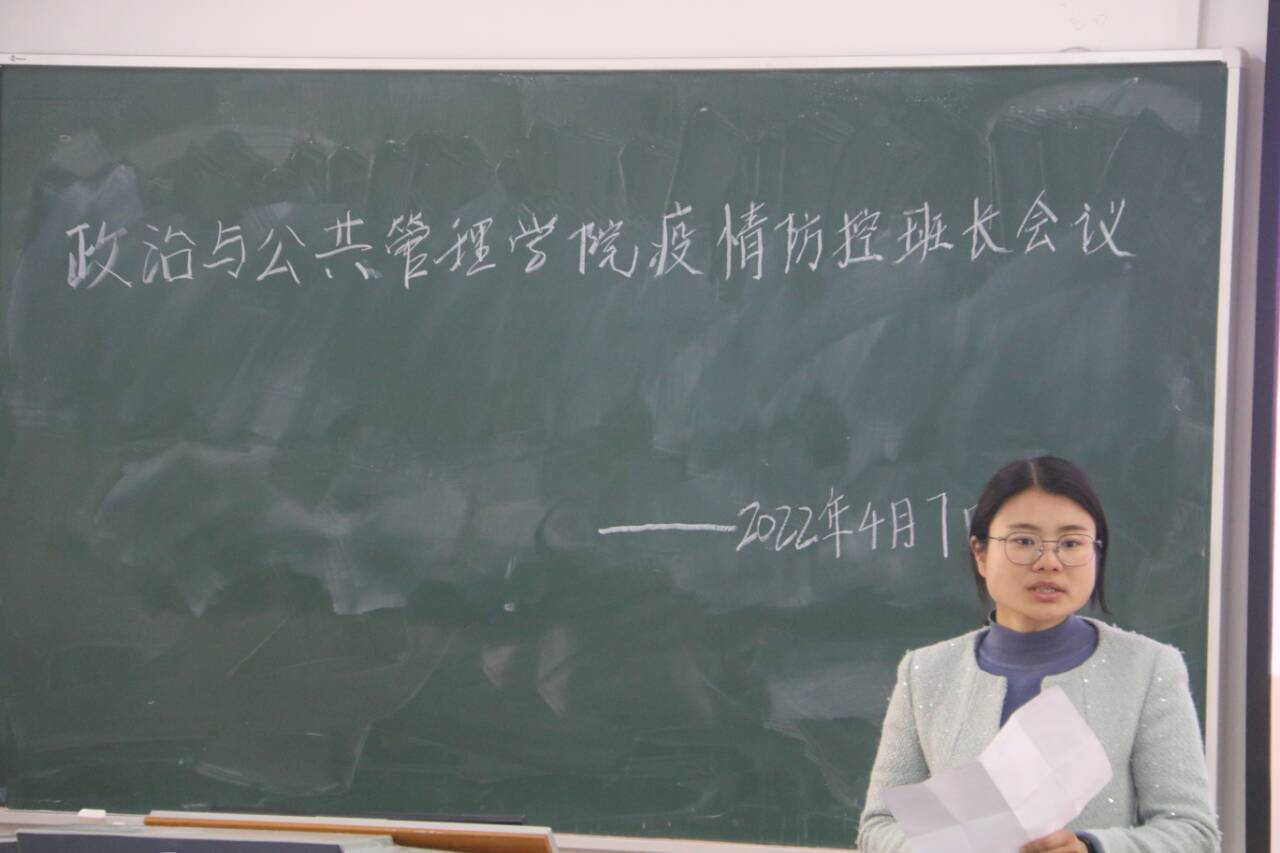 政治与公共管理学院疫情防控班长会议
——2022年4月7日